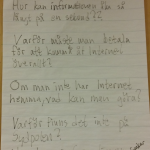 Hur kan informationen nå så
långt på en sekund??
Varför måste man betala
för att komma åt internet
Om man inte har internet
hemma, vad kan man göra?
Varför finns det inte på